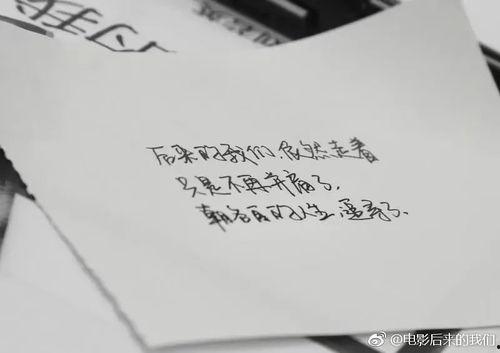 的我
后来的我们，依然走着
只是不再并肩了，
朝各自的人生追寻了。
@电影后来的我们